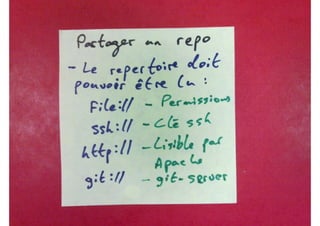 Partager un repo
- Le repertoire doit
pouvoir être lu :
File:// - Permissions
ssh:// - Clé ssh
http:// - Lisible par
Apache
git:// - git-server